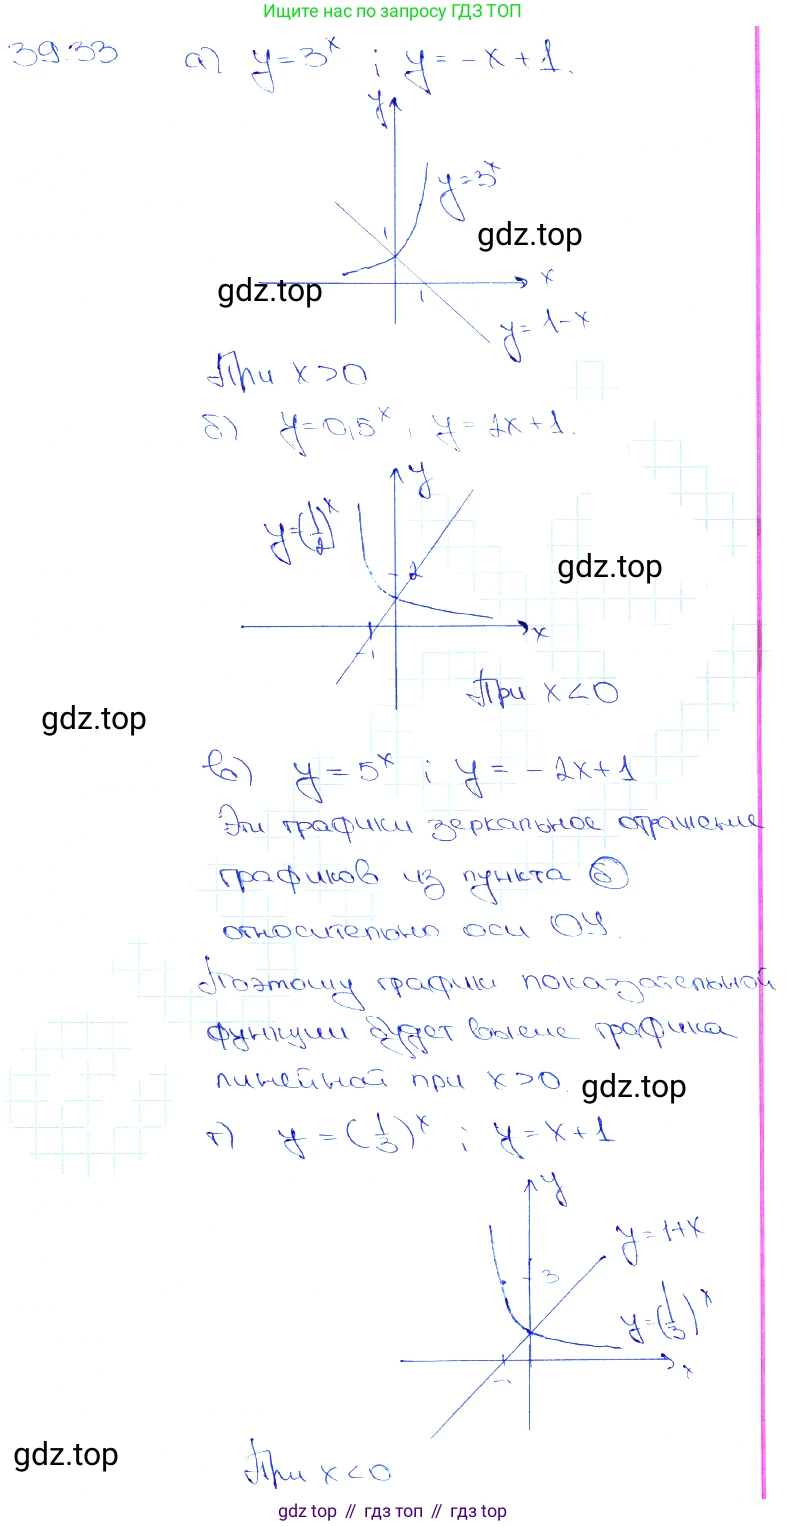 Ищите нас по запросу ГДЗ ТОП
39.33 а) y=3^x ; y=-x+1.
y
y=3^x
1
gdz.top
x
gdz.top
1
y=1-x
При x>0
б) y=0,5^x, y=2x+1.
y
y=(1/2)^x
2
gdz.top
x
-1
При x<0
gdz.top
в) y=5^x ; y=-2x+1
Эти графики зеркальное отражение
графиков из пункта б
относительно оси OY.
Поэтому графики показательной
функции будет выше графика
линейной при x>0.
gdz.top
г) y=(1/3)^x ; y=x+1
y
y=1+x
3
y=(1/3)^x
x
-1
gdz.top
При x<0
gdz top // гдз топ // gdz top